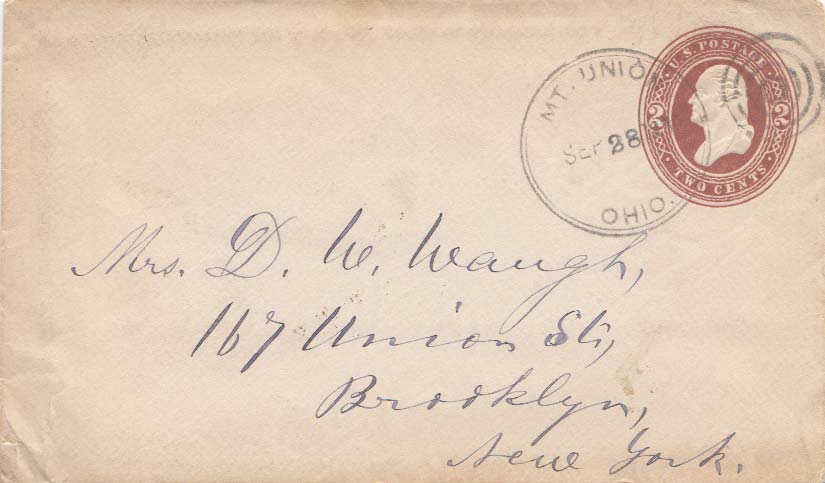 U.S. POSTAGE
2 2
TWO CENTS
MT. UNION
SEP 28
OHIO.
Mrs. D. W. Waugh,
167 Union St.,
Brooklyn,
New York.